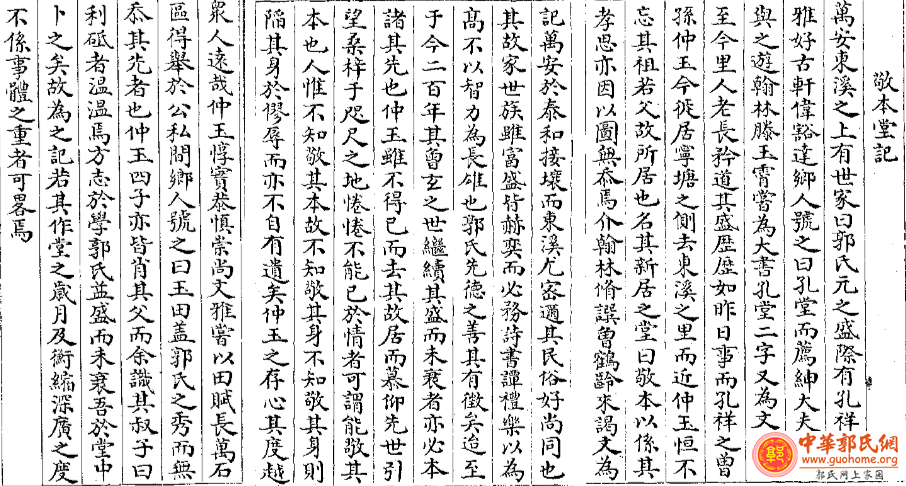 敬本堂記
萬安東溪之上有世家曰郭氏元之盛際有孔祥
雅好古軒偉豁達鄉人號之曰孔堂而薦紳大夫
與之遊翰林滕玉霄嘗為大書孔堂二字又為文
至今里人老長矜道其盛歷歷如昨日事而孔祥之曾
孫仲玉今徙居寧塘之側去東溪之里而近仲玉恒不
忘其祖若父故所居也名其新居之堂曰敬本以係其
孝思亦因以圖無忝焉介翰林脩譔曾鶴齡來謁文為
記萬安於泰和接壤而東溪尤密邇其民俗好尚同也
其故家世族雖富盛皆赫奕而必務詩書譚禮樂以為
髙不以智力為長雄也郭氏先德之善其有徴矣迨至
于今二百年其曾玄之世繼續其盛而未衰者亦必本
諸其先也仲玉雖不得已而去其故居而慕仰先世引
望桑梓于咫尺之地惓惓不能已於情者可謂能敬其
本也人惟不知敬其本故不知敬其身不知敬其身則
陷其身於僇辱而亦不自有遺矣仲玉之存心其度越
衆人遠哉仲玉惇實恭慎崇尚文雅嘗以田賦長萬石
區得舉於公私間鄉人號之曰玉田盖郭氏之秀而無
忝其先者也仲玉四子亦皆肖其父而余識其叔子曰
利砥者温温焉方志於學郭氏益盛而未衰吾於堂中
卜之矣故為之記若其作堂之歲月及衡縮深廣之度
不係事體之重者可畧焉
中華郭氏網
www.guohome.org
郭氏网上家園